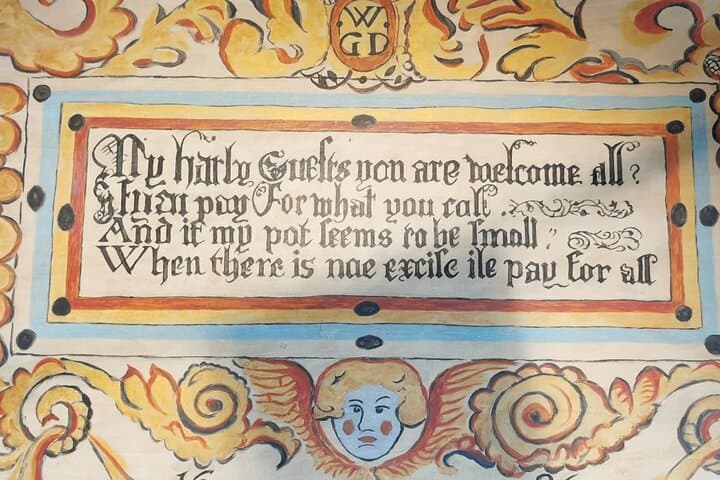 W
GD
My harty Gueſts you are welcome all?
If you pay For what you call ..
And if my pot ſeems to be ſmall ?
When there is noe exciſe ile pay for all